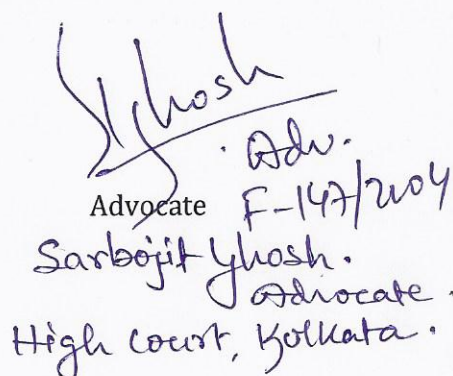 SGhosh
Adv.
Advocate F-147/2004
Sarbojit Ghosh.
Advocate.
High Court, Kolkata.